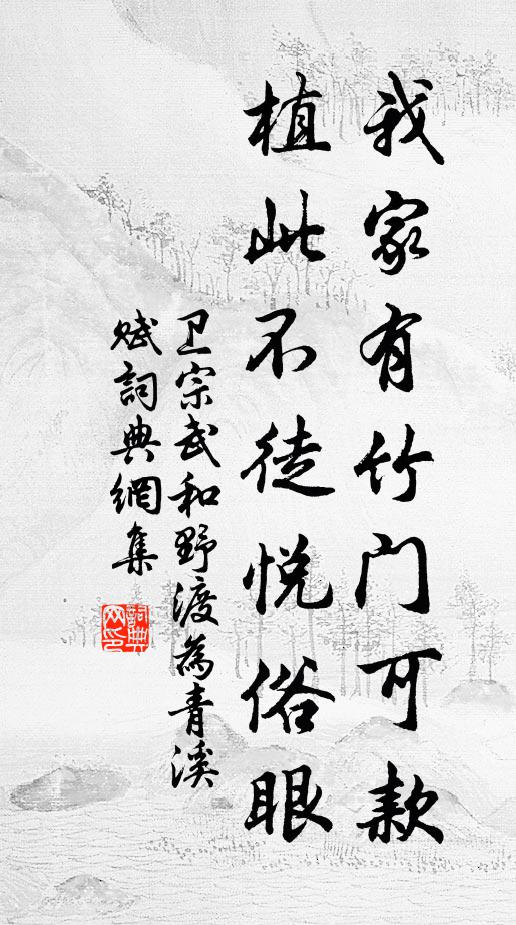 我家有竹门可款
植此不徒悦俗眼
卫宗武和野渡為青溪
赋詞典網集
詞典
网印